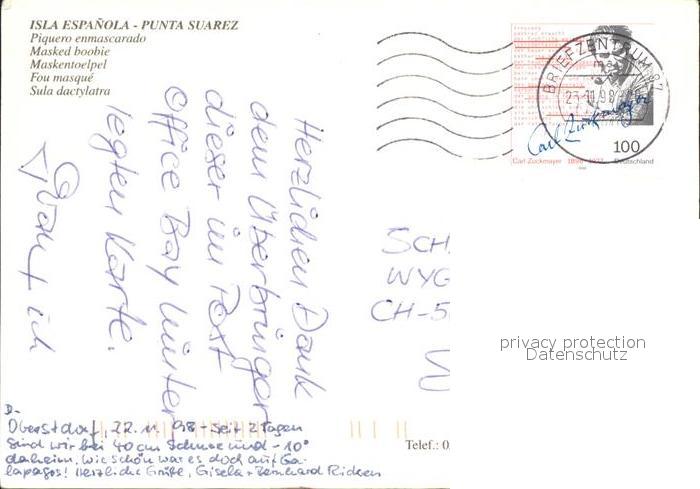 ISLA ESPAÑOLA - PUNTA SUAREZ
Piquero enmascarado
Masked boobie
Maskentoelpel
Fou masqué
Sula dactylatra
Herzlichen Dank
dem Überbringer
dieser im Post
Office Bay hinter-
legten Karte.
BRIEFZENTRUM 87
23.11.98
Carl Zuckmayer
100
Carl Zuckmayer 1896-1977 Deutschland
SCH
WYG
CH-5
privacy protection
Datenschutz
D-
Oberstdorf, 22.11.98 - Seit 2 Tagen
sind wir bei 40 cm Schnee und -10°
daheim, wie schön war es doch auf Ga-
lapagos! Herzliche Grüße, Gisela + Bernhard
Telef.: 0